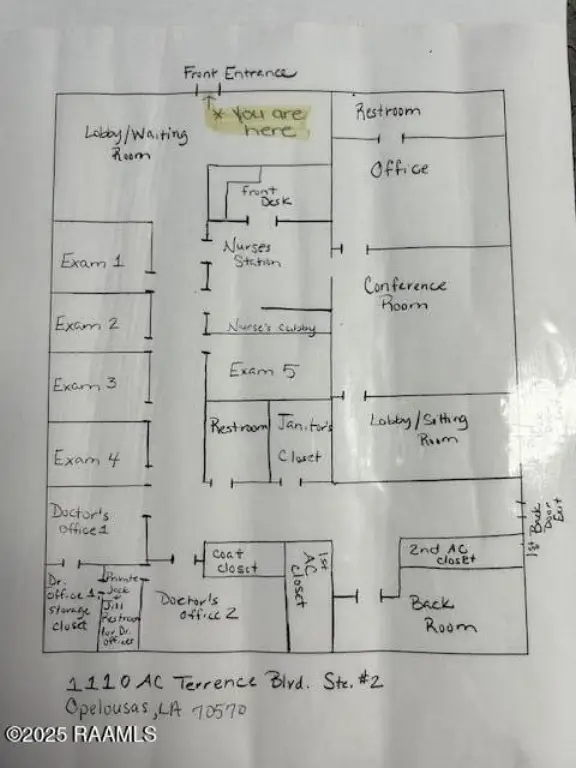 Front Entrance
* You are
here
Restroom
Lobby/Waiting
Room
Office
Front
Desk
Nurses
Station
Exam 1
Conference
Room
Exam 2
Nurse's Cubby
Exam 3
Exam 5
Restroom
Janitor's
Closet
Lobby/Sitting
Room
Exam 4
Doctor's
Office 1
1st Back
Door
Exit
Coat
closet
1st
AC
closet
2nd AC
closet
Dr.
office 1
storage
closet
Private
Jack
Jill
Restroom
for Dr.
offices
Doctor's
office 2
Back
Room
1110 AC Terrence Blvd. Ste. #2
Opelousas, LA 70570
©2025 RAAMLS